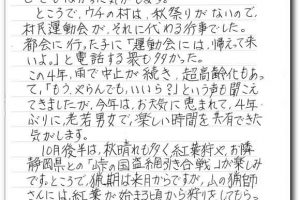 ところで、ウチの村は、秋祭りがないので、
村民運動会が、それに代わる行事でした。
都会に行った子に「運動会には、帰えて来
いよ。」と電話する親も多かった。
この4年、雨で中止が続き、超高齢化もあっ
て、「もう、やらんでも、いいら?」という声も聞こえ
てきましたが、今年は、お天気に恵まれて、4年
ぶりに、老若男女で、楽しい時間を共有できた
気がします。
10月後半は、秋晴れも多く紅葉狩りや、お隣
静岡県との「峠の国盗り綱引き合戦」が楽しみ
です。ところで、猟期は来月からですが、山の猟師
さんには、紅葉が始まる頃から狩りをしてもらっ